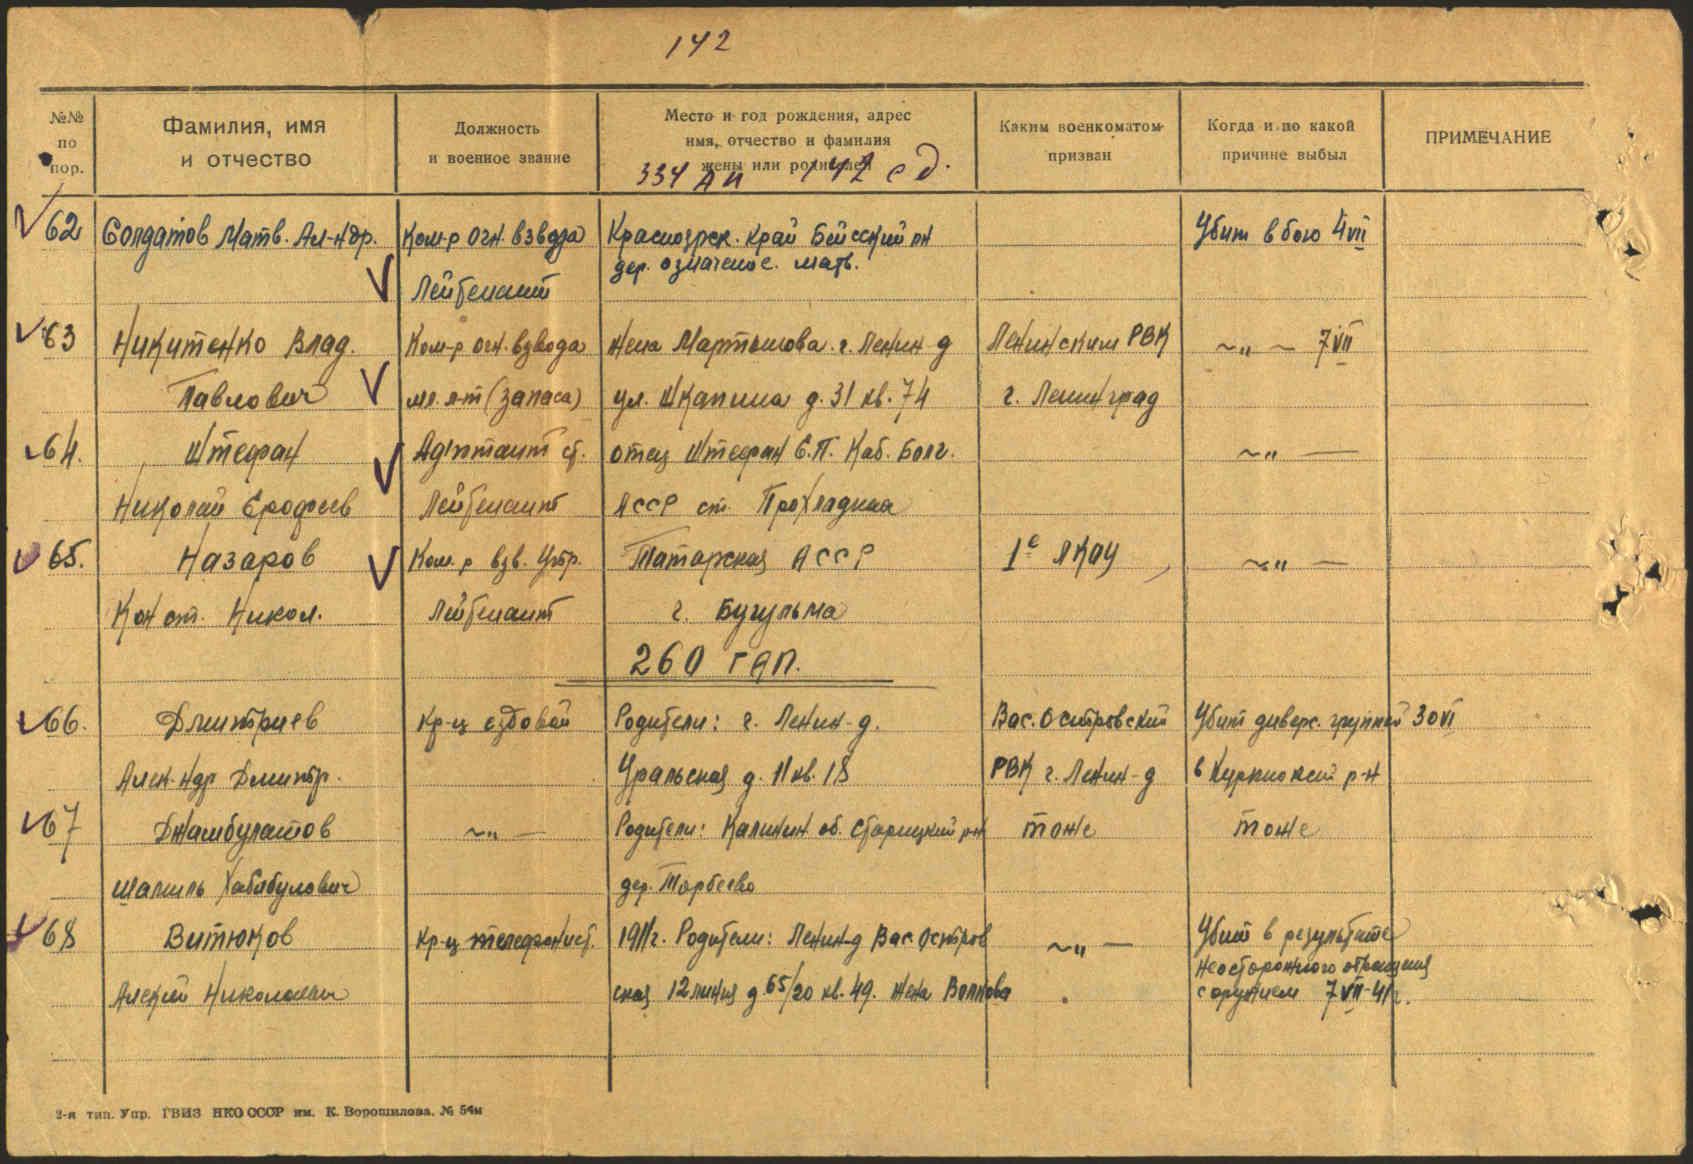 142
№№ по пор.
Фамилия, имя и отчество
Должность и военное звание
Место и год рождения, адрес имя, отчество и фамилия жены или родителей
Каким военкоматом призван
Когда и по какой причине выбыл
ПРИМЕЧАНИЕ
334 АП 142 сд.
62 Солдатов Матв. Ал-ндр. Ком-р огн. взвода Красноярск. край Бейсский рн Убит в бою 4 VII
дер. означеное. мать.
Лейтенант
63 Никитенко Влад. Ком-р огн. взвода жена Мартынова. г. Ленин-д Ленинским РВК ~"— 7 VII
Павлович мл. л-т (запаса) ул. Шкапина д. 31 кв. 74 г. Ленинград
64. Штефан Адъютант ст. отец Штефан Е.П. Каб. Балг. ~"—
Николай Ерофеев Лейтенант АССР ст. Прохладная
65. Назаров Ком-р взв. Упр. Татарская АССР 1е ЛКАУ ~"—
Конст. Никол. Лейтенант г. Бугульма
260 ГАП.
66. Дмитриев Кр-ц ездовой Родители: г. Ленин-д. Вас. Островский Убит диверс. группой 30 VI
Алек-ндр Дмитр. Уральская д. 11 кв. 18 РВК г. Ленин-д в р-н
67 Джамбулатов ~"— Родители: Калинин об. Старицкий рн тоже тоже
Шамиль Хабибулович дер. Тарбеево
68 Витюков Кр-ц телефонист. 1911г. Родители: Ленин-д Вас. Остров ~"— Убит в результате
неосторожного обращения
Алексей Николаевич ская 12 линия д. 65/20 кв. 49. жена Волкова с оружием 7 VII-41г.
2-я тип. Упр. ГВИЗ НКО СССР им. К. Ворошилова. № 54м